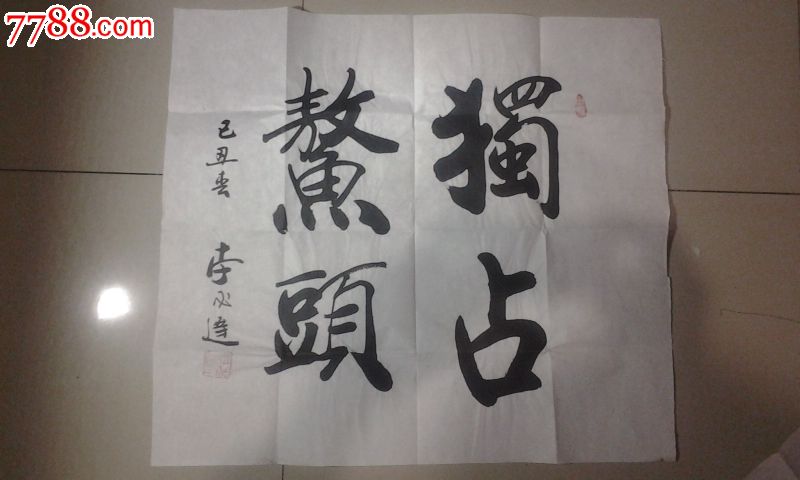 7788.com
獨占
鰲頭
己丑春
李必達